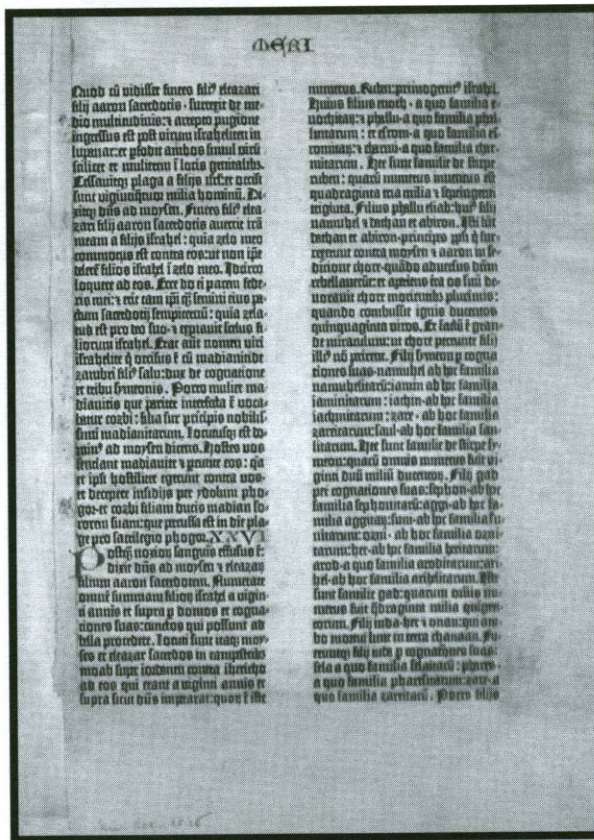 MERI
Quod cū vidisset finees fili⁹ eleazari
filij aaron sacerdotis · surrexit de me-
dio multitudinis: ⁊ arrepto pugione
ingressus est post virum israheliten in
lupanar: et ꝑfodit ambos simul virū
scilicet et mulierem ī locis genitalibꝫ.
Cessavitqꝫ plaga a filijs isrl̄: et occisi
sunt vigintiquatuor milia hominū. Di-
xitqꝫ dn̄s ad moysen. Finees fili⁹ elea-
zari filij aaron sacerdotis avertit irā
meam a filijs israhel: quia zelo meo
commotus est contra eos: ut non ip̄e
delerē filios israhel ī zelo meo. Idcirco
loquere ad eos. Ecce do ei pacem fede-
ris mei: ⁊ erit tam ip̄i q̄ȝ semini eius pa-
ctum sacerdotij sempiternū: quia zela-
tus est pro deo suo · ⁊ expiavit scelus fi-
liorum israhel. Erat autē nomen viri
israhelite q̄ occisus ē cū madianitide
zambri fili⁹ salu: dux de cognatione
et tribu symeonis. Porro mulier ma-
dianitis que pariter interfecta ē voca-
batur cozbi: filia sur prīcipis nobilis-
simi madianitarum. Locutusqꝫ est do-
min⁹ ad moysen dicens. Hostes vos
sentiant madianite ⁊ percute eos: q̄a
et ipsi hostiliter egerunt contra vos ·
et decepere insidijs per ydolum pho-
gor · et cozbi filiam ducis madian so-
rorem suam: que percussa est in die pla-
ge pro sacrilegio phogor. XXVI
Postq̄ȝ noxioꝝ sanguis effusus ē:
dixit dn̄s ad moysen ⁊ eleazarū
filium aaron sacerdotem. Numerate
omnē summam filioꝝ israhel a vigin-
ti annis et supra ꝑ domos et cogna-
tiones suas: cunctos qui possunt ad
bella procedere. Locuti sunt itaqꝫ moy-
ses et eleazar sacerdos in campestribꝫ
moab supra iordanem contra ihericho
ad eos qui erant a viginti annis et
supra sicut dn̄s imperarat: quoꝝ ē iste
numerus. Ruben: primogenit⁹ israhel.
Huius filius enoch · a quo familia e-
nochitaꝝ: ⁊ phallu · a quo familia phal-
luitarum: et esrom · a quo familia es-
romitaꝝ: ⁊ charmi · a quo familia char-
mitarum. Hee sunt familie de stirpe
ruben: quarū numerus inventus est
quadraginta tria milia ⁊ septingenti
triginta. Filius phallu eliab: hui⁹ filij
namuhel ⁊ dathan et abiron. Isti sūt
dathan et abiron · principes ppl̄i q̄ sur-
rexerunt contra moysen ⁊ aaron in se-
ditione chore · quādo adversus dūm
rebellaverūt: et aperiens t̄ra os suū de-
voravit chore morientibꝫ plurimis:
quando combussit ignis ducentos
quinquaginta viros. Et factū ē gran-
de miraculum: ut chore pereunte filij
illi⁹ nō perirent. Filij symeon ꝑ cogna-
tiones suas · namuhel · ab hoc familia
namuhelitarū: iamin · ab hoc familia
iaminitarum: iachin · ab hoc familia
iachinitarum: zare · ab hoc familia
zareitarum: saul · ab hoc familia sau-
litarum. Hee sunt familie de stirpe sy-
meon: quarū omnis numerus fuit vi-
ginti duū miliū ducentoꝝ. Filij gad
per cognationes suas: sephon · ab hoc
familia sephonitarū: aggi · ab hoc fa-
milia aggitaꝝ: suni · ab hoc familia su-
nitarum: ozni · ab hoc familia oznitarum: her · ab hoc familia heritarum:
arod · a quo familia aroditarum: ari-
hel · ab hoc familia arihelitarum. Iste
sunt familie gad: quarum omīs nu-
merus fuit q̄draginta milia quīgen-
torum. Filij iuda · her ⁊ onan: qui am-
bo mortui sunt in terra chanaan. Fu-
eruntqꝫ filij iuda ꝑ cognationes suas ·
sela a quo familia selaitarū: phares ·
a quo familia pharesitarum: zare · a
quo familia zareitarū. Porro filij